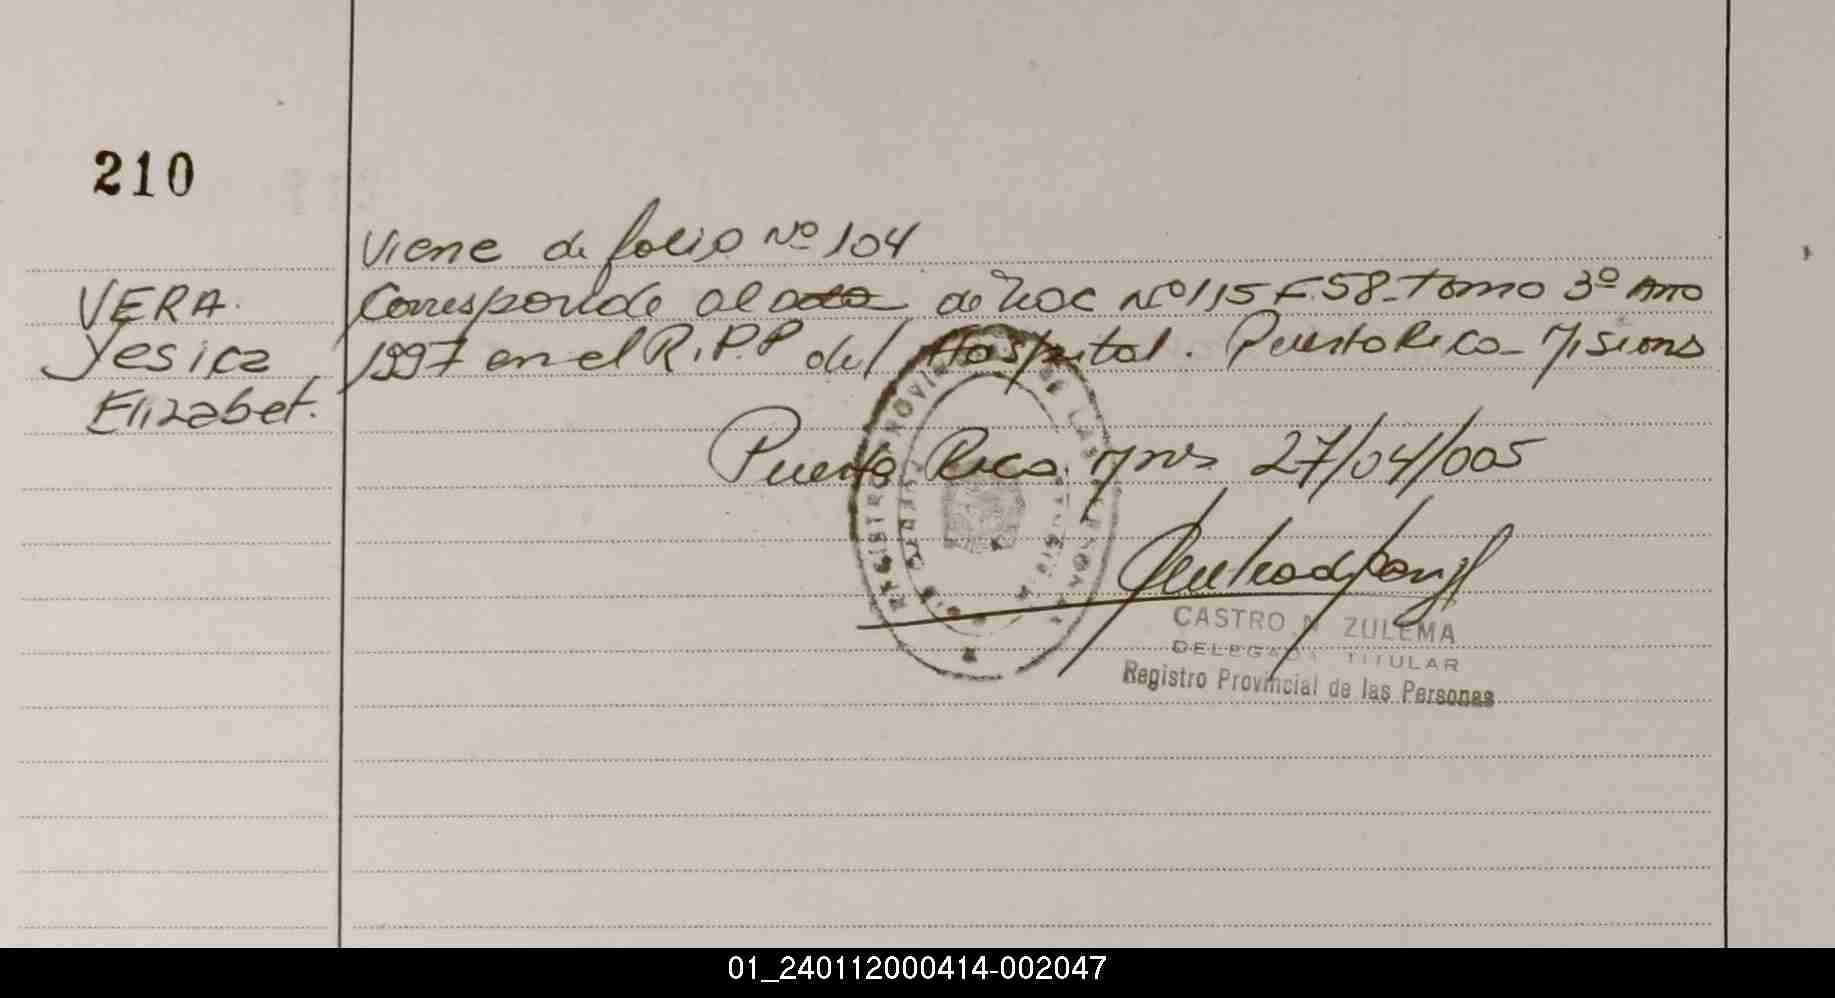 210
Viene de folio Nº 104
VERA.
Yesica
Elizabet.
Corresponde al acta de Nac Nº 115 F. 58 - Tomo 3º Año
1997 en el R.P.P del Hospital. Puerto Rico - Misiones
Puerto Rico. Mnes 27/04/005
REGISTRO PROVINCIAL DE LAS PERSONAS
CASTRO N. ZULEMA
DELEGADA TITULAR
Registro Provincial de las Personas
01_240112000414-002047